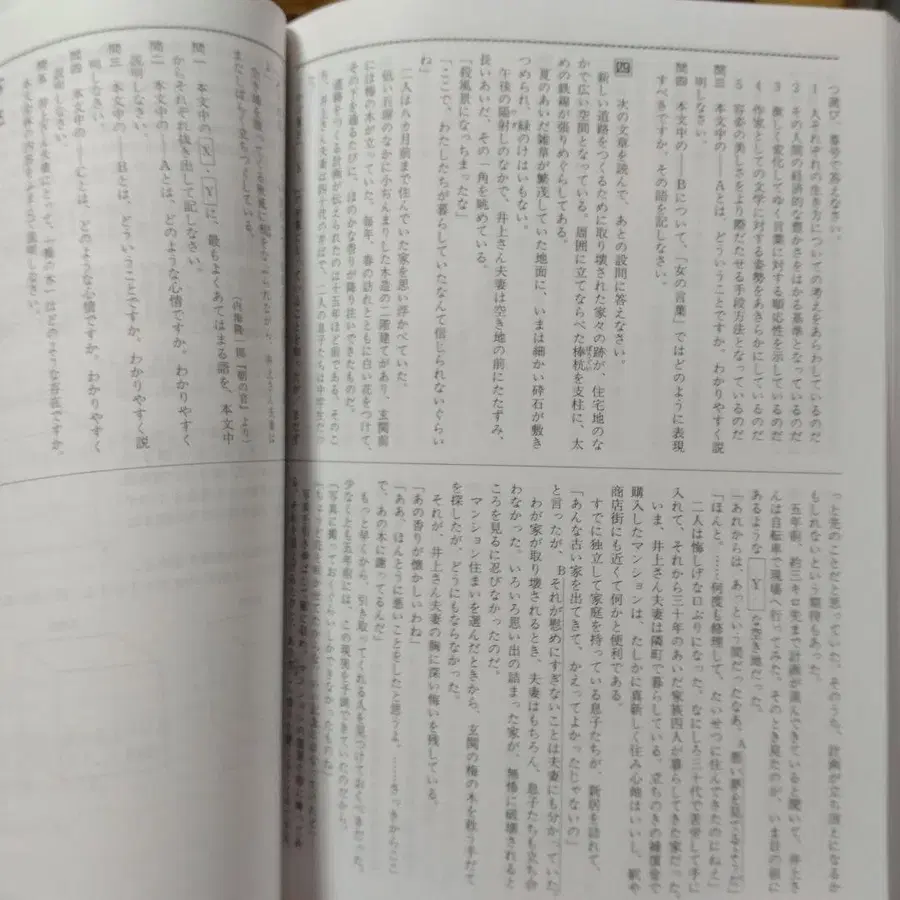 つ選び、番号で答えなさい。
1 人それぞれの生き方についての考えをあらわしているのだ
2 その人間の経済的な豊かさをはかる基準となっているのだ
3 激しく変化してゆく言葉に対する順応性を示しているのだ
4 作家としての文学に対する姿勢をあきらかにしているのだ
5 容姿の美しさをより際だたせる手段方法となっているのだ
問三 本文中の――Aとは、どういうことですか。わかりやすく説
明しなさい。
問四 本文中の――Bについて、「女の言葉」ではどのように表現
すべきですか。その語を記しなさい。
四 次の文章を読んで、あとの設問に答えなさい。
新しい道路をつくるために取り壊された家々の跡が、住宅地のな
かで広い空間となっている。周囲に立てならべた棒杭を支柱に、太
めの鉄線が張りめぐらしてある。
夏のあいだ雑草が繁茂していた地面に、いまは細かい砕石が敷き
つめられ、緑のけはいもない。
午後の陽射しのなかで、井上さん夫妻は空き地の前にたたずみ、
長いあいだ、その一角を眺めている。
「殺風景になっちまったな」
「ここで、わたしたちが暮らしていたなんて信じられないぐらい
ね」
二人は八カ月前まで住んでいた家を思い浮かべていた。
低い石塀のなかに小ぢんまりした木造の二階建てがあり、玄関前
には梅の木が立っていた。毎年、春の訪れとともに白い花をつけて、
その下を通るたびに、ほのかな香りが降り注いできたものだ。
道路をつくる計画が伝えられたのは十五年ほど前である。そのこ
ろ、井上さん夫妻は四十代の半ばで、二人の息子たちは中学生だっ
っと先のことだと思っていた。そのうち、計画が立ち消えになるか
もしれないという期待もあった。
五年前、約三キロ先まで計画が進んできていると聞いて、井上さ
んは自転車で現場へ行ってみた。そのとき見たのが、いま目の前に
あるような Y な空き地だった。
「あれからは、あっという間だったなあ。A悪い夢を見てるようだ」
「ほんと。……何度も修理して、たいせつに住んできたのにねえ」
二人は悔しげな口ぶりになった。なにしろ三十代で苦労して手に
入れて、それから三十年のあいだ家族四人が暮らしてきた家だった。
いま、井上さん夫妻は隣町で暮らしている。立ちのきの補償金で
購入したマンションは、たしかに真新しく住み心地はいいし、駅や
商店街にも近くて何かと便利である。
すでに独立して家庭を持っている息子たちが、新居を訪れて、
「あんな古い家を出てきて、かえってよかったじゃないの」
と言ったが、Bそれが慰めにすぎないことは夫妻にも分かっていた。
わが家が取り壊されるとき、夫妻はもちろん、息子たちも立ち会
わなかった。いろいろ思い出の詰まった家が、無惨に破壊されると
ころを見るに忍びなかったのだ。
マンション住まいを選んだときから、玄関の梅の木を救う手だて
を探したが、どうにもならなかった。
それが、井上さん夫妻の胸に深い悔いを残している。
「あの香りが懐かしいわね」
「ああ、ほんとうに悪いことをしたと思うよ。……さっきからここ
で、あの木に謝ってるんだ」
もっと早くから、引き取ってくれる人を見つけておくべきだった。
少なくとも五年前には、この現実を予測できていたのだから。
「写真に撮っておくぐらいしかできなかったものね」
まだしばらく立ちつくしている。
（内海隆一郎『朝の音』より）
問一 本文中の X ・ Y に、最もよくあてはまる語を、本文中
からそれぞれ抜き出して記しなさい。
問二 本文中の――Aとは、どのような心情ですか。わかりやすく
説明しなさい。
問三 本文中の――Bとは、どういうことですか。わかりやすく説
明しなさい。
問四 本文中の――Cとは、どのような心情ですか。わかりやすく
説明しなさい。
問五 井上さん夫妻にとって、「梅の木」はどのような存在ですか。